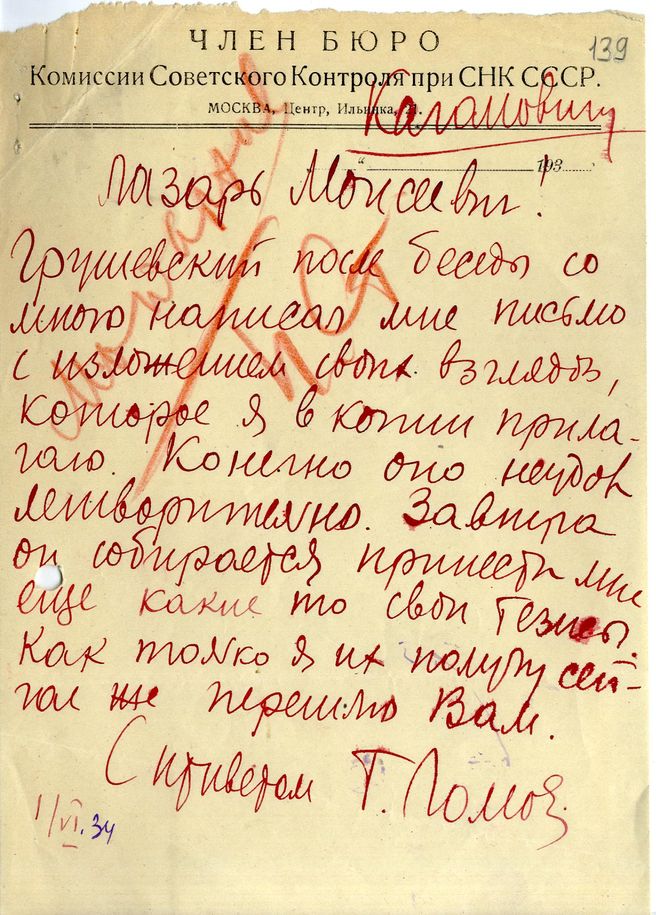 139
ЧЛЕН БЮРО
Комиссии Советского Контроля при СНК СССР.
МОСКВА, Центр, Ильинка, 21.
Кагановичу
" 193
Лазарь Моисеевич!
Грушевский после беседы со
мною написал мне письмо
с изложением своих взглядов,
которое я в копии прила-
гаю. Конечно оно неудов
летворительно. Завтра
он собирается принести мне
еще какие то свои тезисы.
Как только я их получу сей-
час же перешлю Вам.
С приветом Г. Ломов
1/VI.34